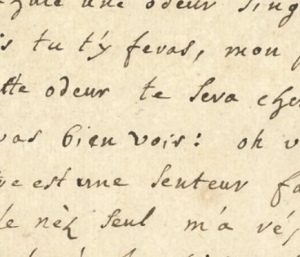 une odeur sing
tu t'y feras, mon
odeur te sera cher
vas bien vois: oh
est une senteur fa
nèz seul m'a rép